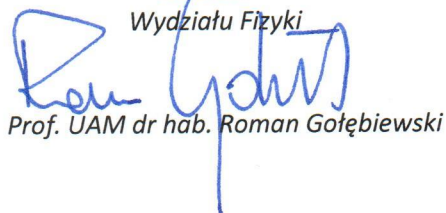 Wydziału Fizyki
Prof. UAM dr hab. Roman Gołębiewski